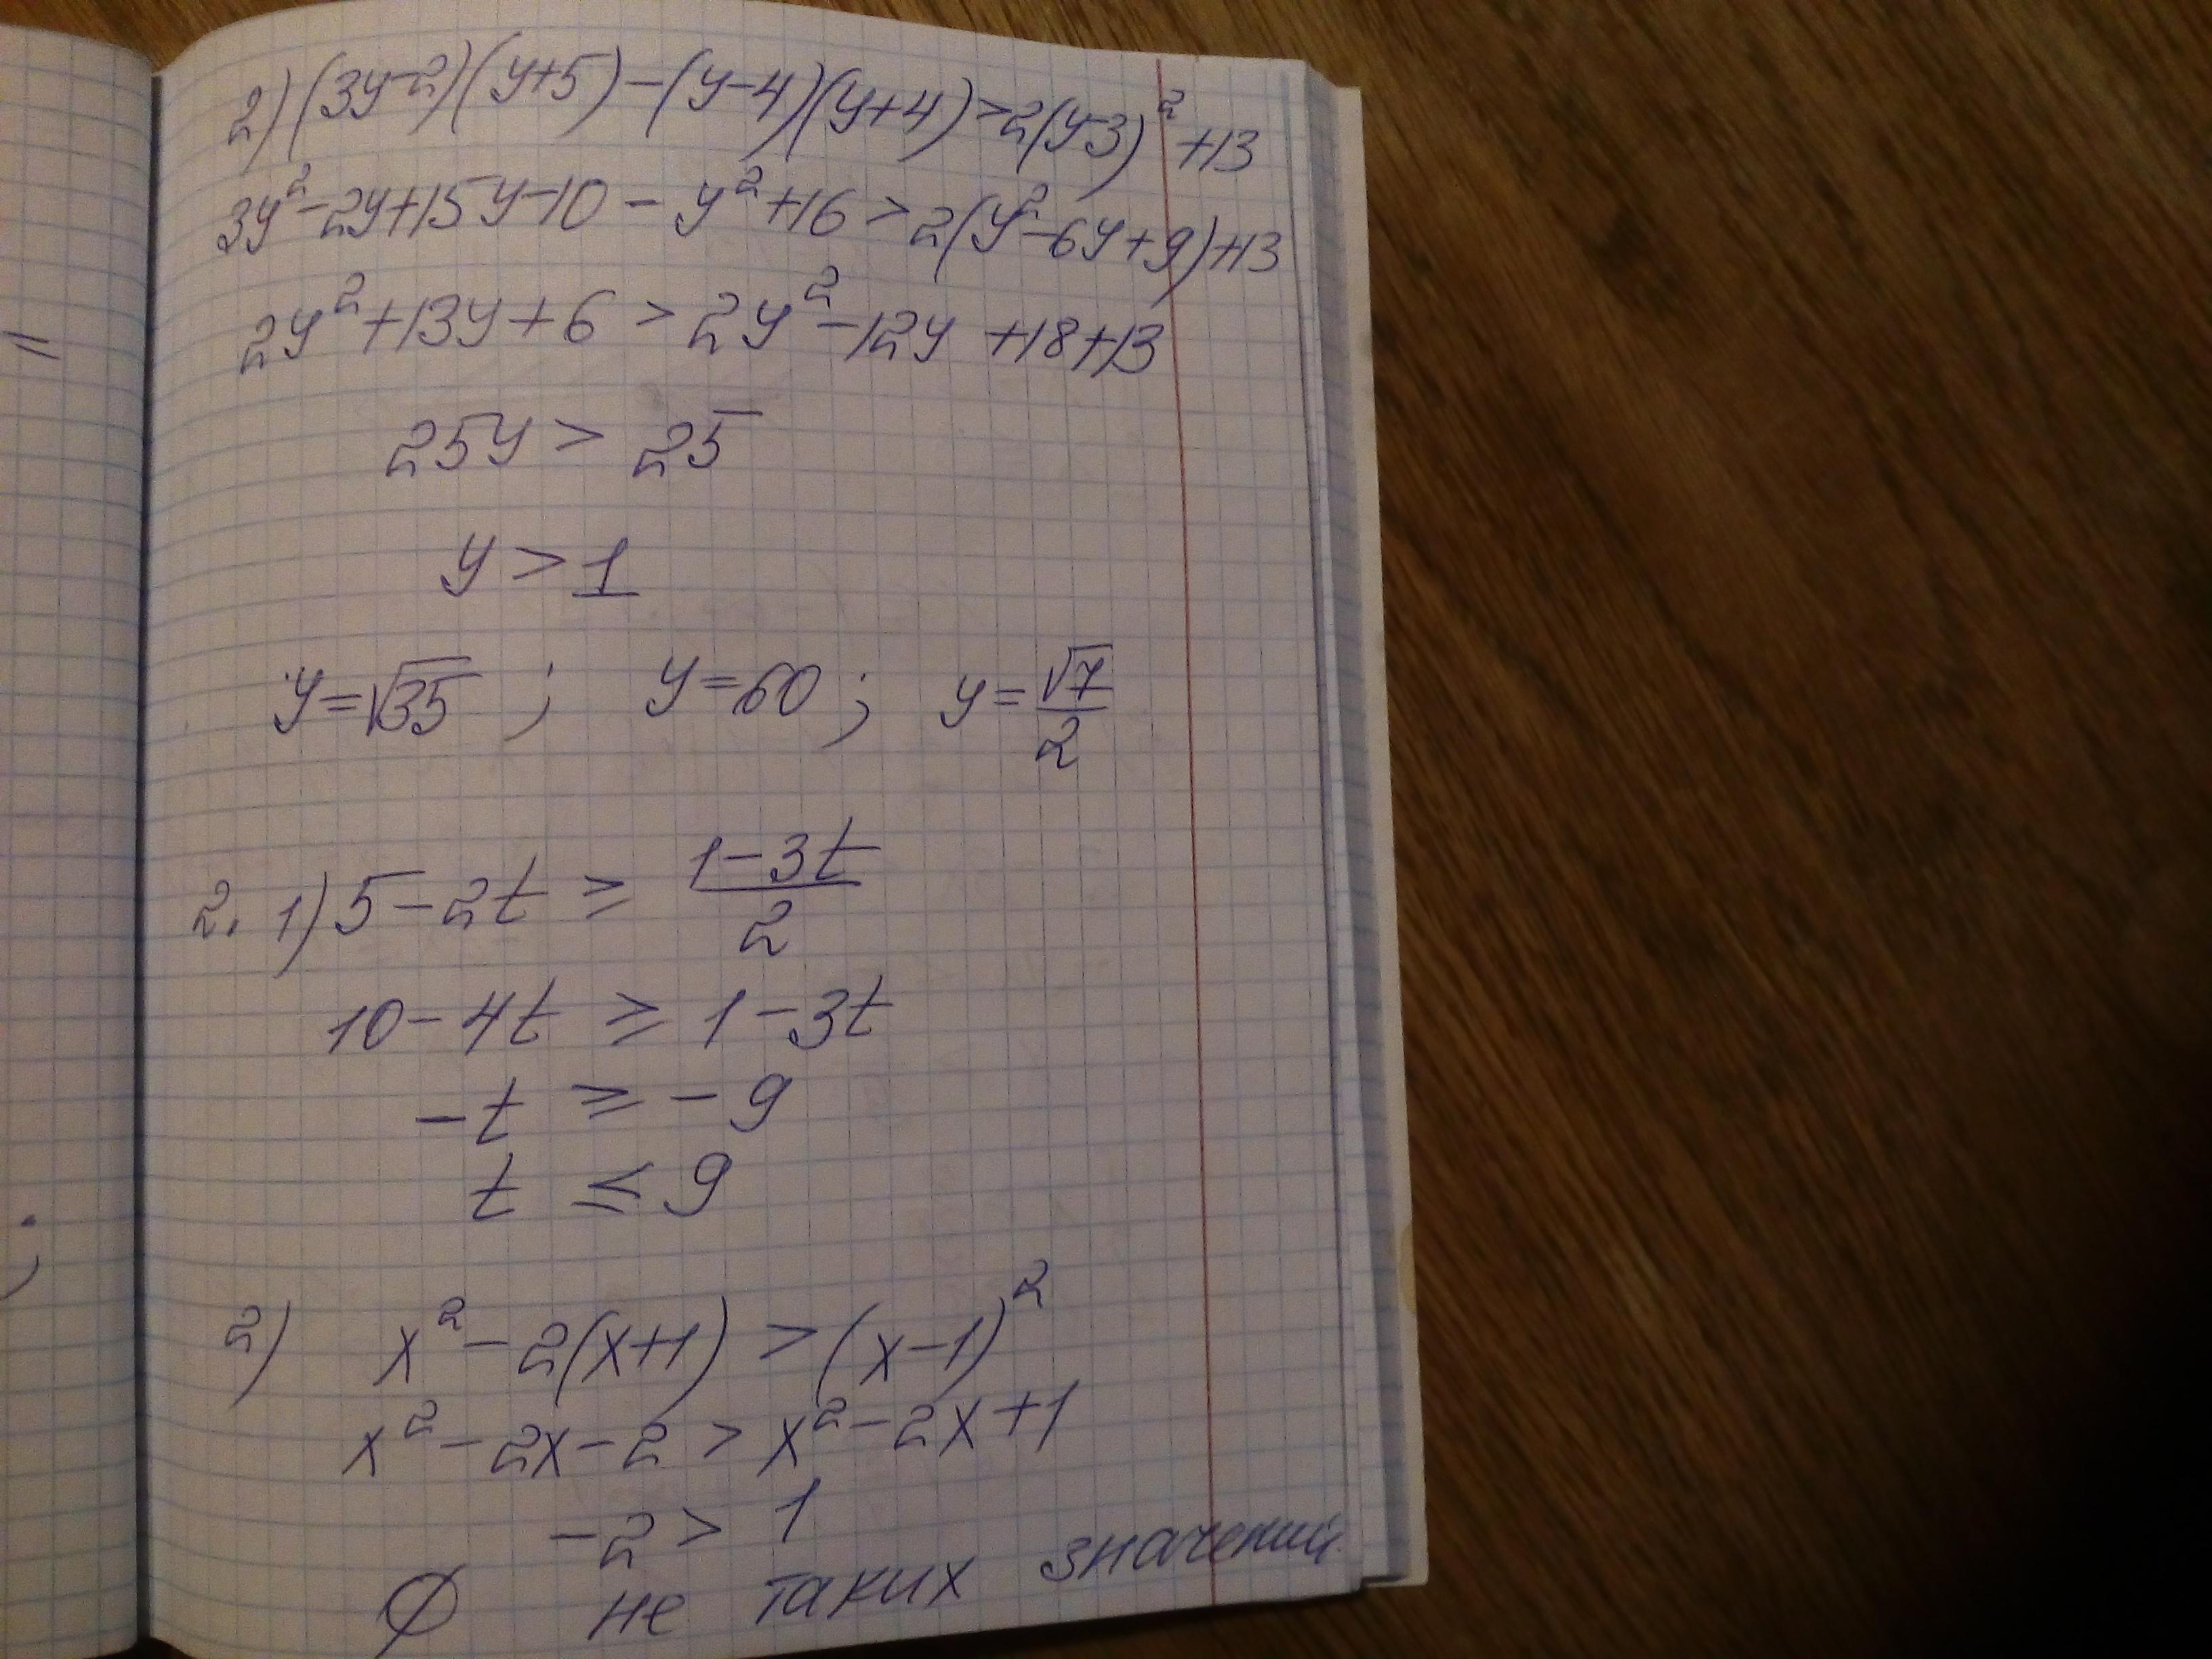 2) (3y-2)(y+5)-(y-4)(y+4)>2(y-3)²+13
3y²-2y+15y-10-y²+16>2(y²-6y+9)+13
2y²+13y+6>2y²-12y+18+13
25y>25
y>1
y=√35; y=60; y=√7/2
2. 1) 5-2t≥(1-3t)/2
10-4t≥1-3t
-t≥-9
t≤9
2) x²-2(x+1)>(x-1)²
x²-2x-2>x²-2x+1
-2>1
∅ не таких значений
=
;